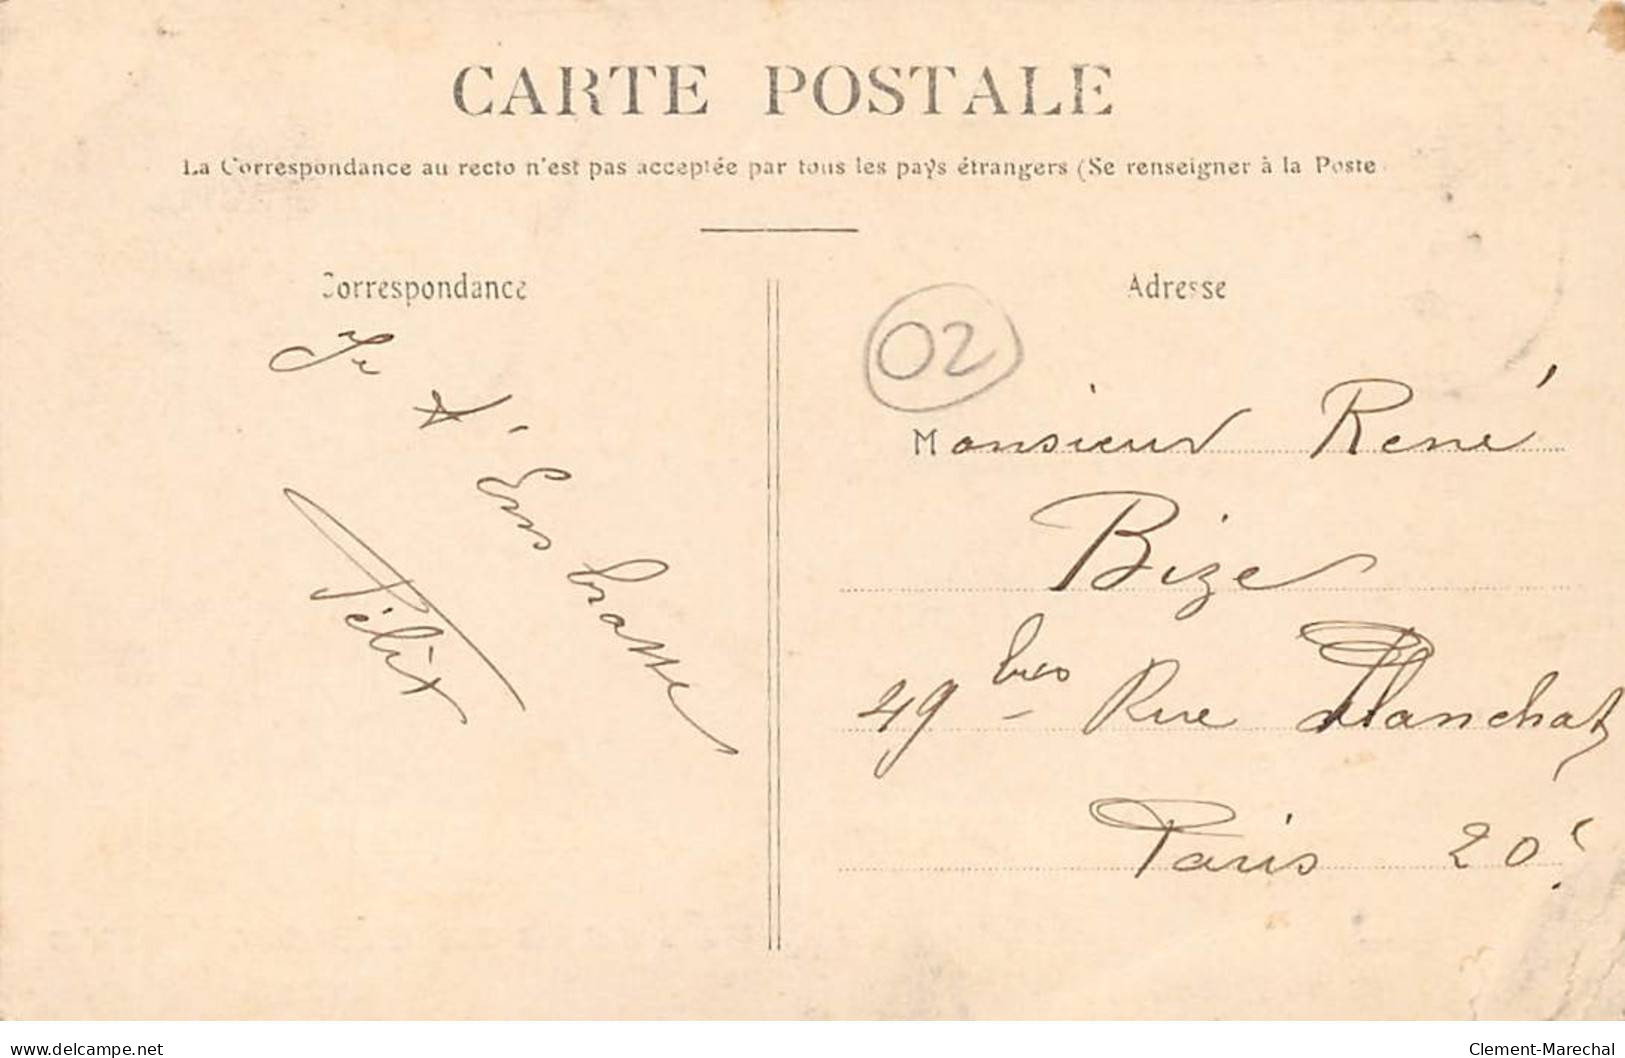 CARTE POSTALE
La Correspondance au recto n'est pas acceptée par tous les pays étrangers (Se renseigner à la Poste
Correspondance
Je t'Embrasse
Félix
Adresse
02
Monsieur René
Bize
49 bis Rue Planchat
Paris 20e
delcampe.net
Clement-Marechal